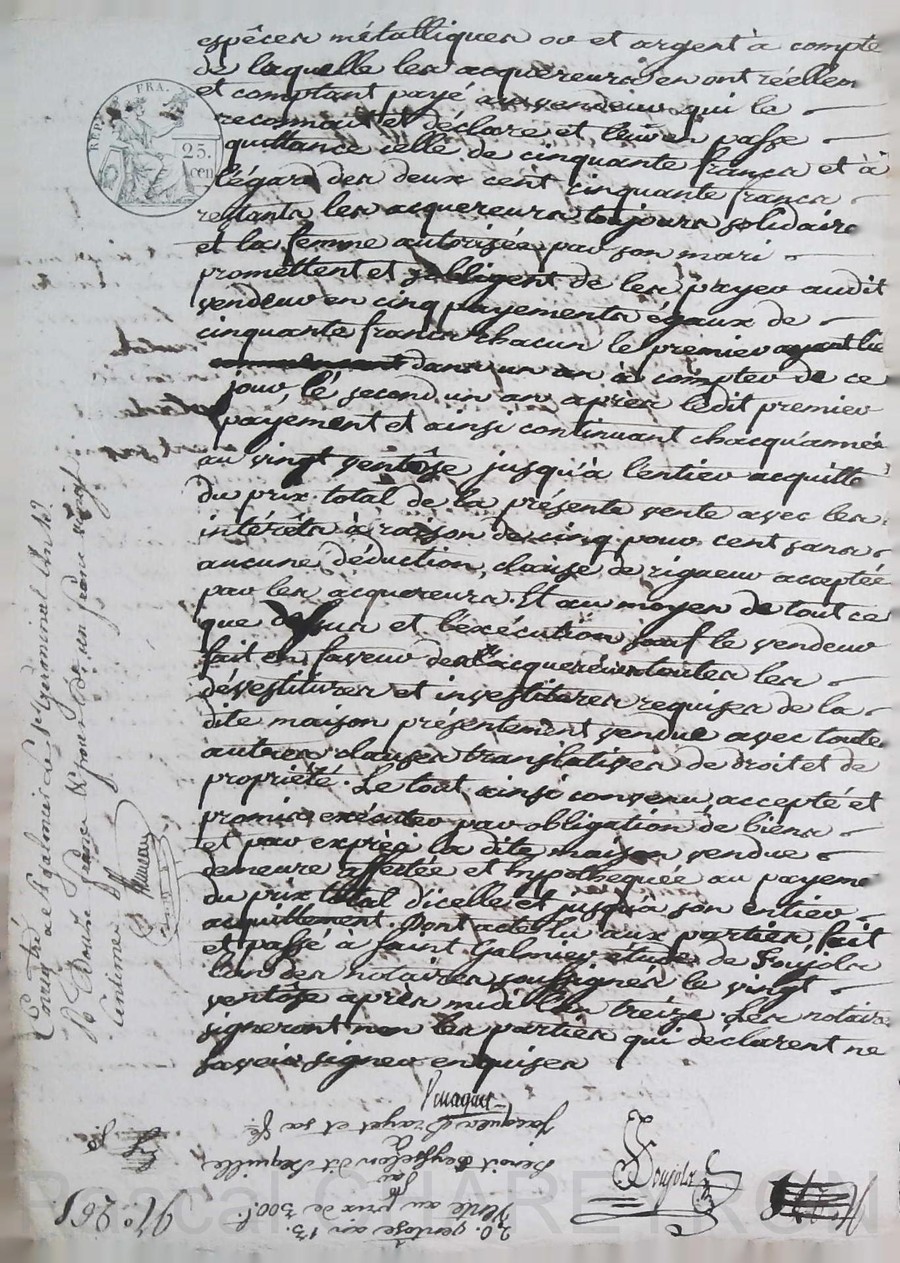 espêces métalliques ou et argent à compte
de laquelle les acquereurs en ont réellem
et comptant payé au vendeur qui le
reconnait et déclare et leur en passe
quittance icelle de cinquante francs et à
l'égard des deux cent cinquante francs
restants les acquereurs toujours solidaire
et la femme autorisée par son mari
promettent et s'obligent de les payer audit
vendeur en cinq payements égaux de
cinquante francs chacun le premier ayant lieu
dans un an à compter de ce
jour, le second un an après ledit premier
payement et ainsi continuant chacqu'année
au vingt ventôse jusqu'à lentier acquitte
du prix total de la présente vente avec les
intérêts à raison de cinq pour cent sans
aucune déduction, clause de rigueur acceptée
par les acquereurs. Et au moyen de tout ce
que dessus et l'exécution sauf le vendeur
fait en faveur des acquereurs toutes les
dévestitures et investitures requises de la
dite maison présentement vendue avec toute
autres clauses translatives de droit et de
propriété. Le tout ainsi convenu accepté et
promis exécuter par obligation de biens
et par exprès la dite maison vendue
demeure affectée et hypothequée au payeme
du prix total d'icelle et jusqu'à son entier
acquittement. Dont acte lu aux parties, fait
et passé à Saint Galmier étude de Poujols
l'un des notaires soussignés le vingt
ventôse après midi l'an treize. Les notaire
signeront non les parties qui déclarent ne
savoir signer enquises
Poujols
REP. FRA.
25.
cen
Enrgtré à St galmier le germinal an 13
douze francs
centimes
No. 261
20. ventose an 13.
Vente au prix de 300 f
par
Benoit Peysselon dit
à
Jacques Brayet et sa fe
Pascal CHAREYRON